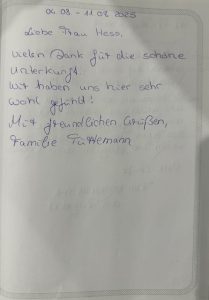 04.08 - 11.08 2023
Liebe Frau Hess,
vielen Dank für die schöne
Unterkunft.
Wir haben uns hier sehr
wohl gefühlt!
Mit freundlichen Grüßen,
Familie